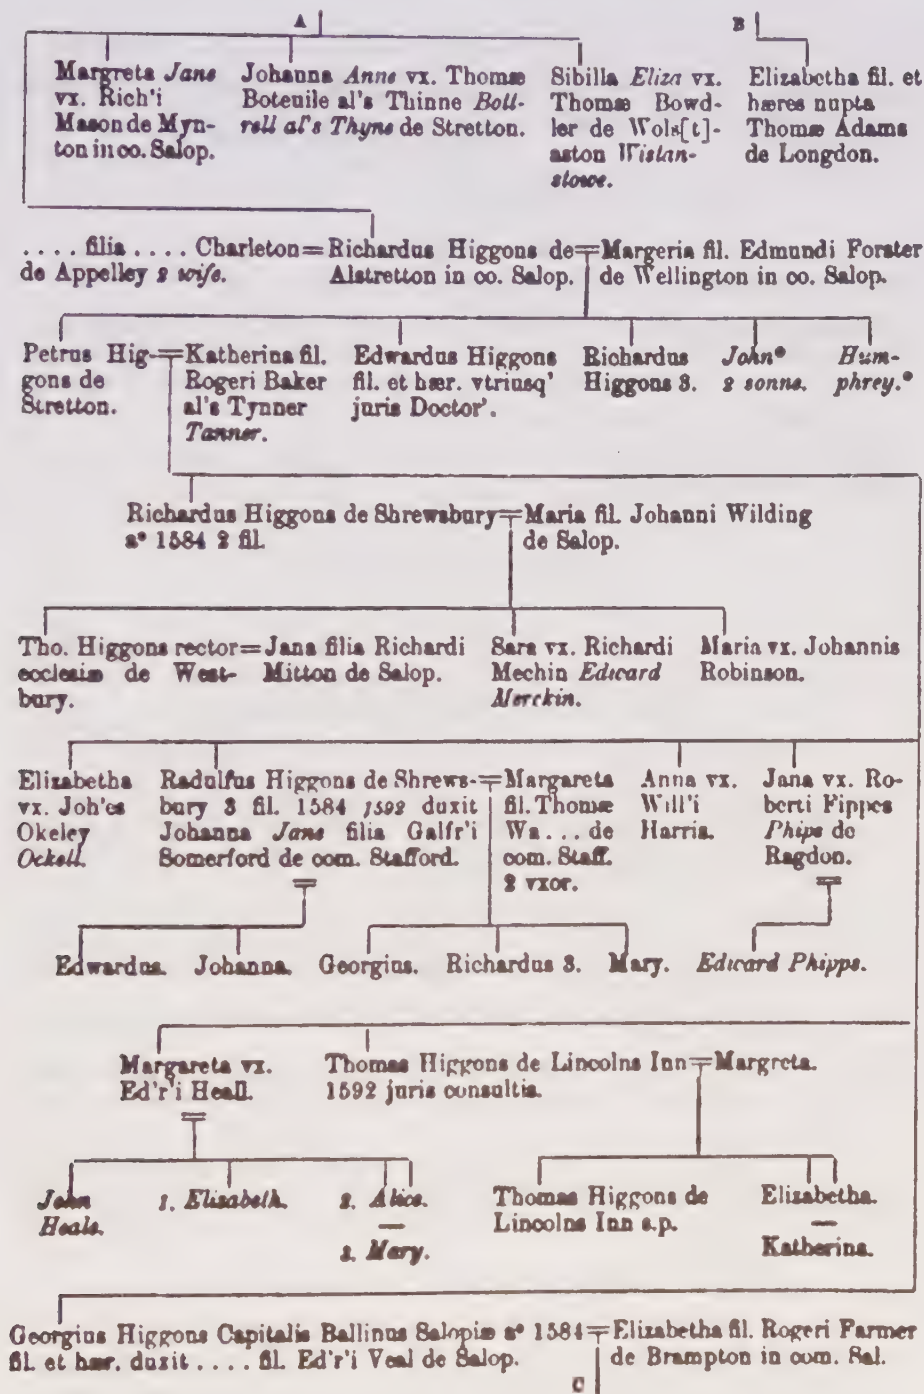 A
B
Margreta Jane
vx. Rich'i
Mason de Myn-
ton in co. Salop.
Johanna Anne vx. Thomæ
Boteuile al's Thinne Bott-
rell al's Thyne de Stretton.
Sibilla Eliza vx.
Thomæ Bowd-
ler de Wols[t]-
aston Wistan-
stowe.
Elizabetha fil. et
hæres nupta
Thomæ Adams
de Longdon.
. . . . filia . . . . Charleton=Richardus Higgons de=Margeria fil. Edmundi Forster
de Appelley 2 wife.
Alstretton in co. Salop.
de Wellington in co. Salop.
Petrus Hig-
gons de
Stretton.
=Katherina fil.
Rogeri Baker
al's Tynner
Tanner.
Edwardus Higgons
fil. et hær. vtriusq'
juris Doctor'.
Richardus
Higgons 3.
John*
2 sonne.
Hum-
phrey.*
Richardus Higgons de Shrewsbury=Maria fil. Johanni Wilding
a° 1584 2 fil.
de Salop.
Tho. Higgons rector=Jana filia Richardi
ecclesiæ de West-
bury.
Mitton de Salop.
Sara vx. Richardi
Mechin Edward
Merckin.
Maria vx. Johannis
Robinson.
Elizabetha
vx. Joh'es
Okeley
Ockell.
Radulfus Higgons de Shrews-
bury 3 fil. 1584 1592 duxit
Johanna Jane filia Galfr'i
Somerford de com. Stafford.
=Margareta
fil. Thomæ
Wa... de
com. Staff.
2 vxor.
Anna vx.
Will'i
Harris.
Jana vx. Ro-
berti Fippes
Phips de
Ragdon.
Edwardus. Johanna. Georgius. Richardus 3. Mary. Edward Phipps.
Margareta vx.
Ed'r'i Heall.
Thomas Higgons de Lincolns Inn=Margreta.
1592 juris consultis.
John
Heale.
1. Elisabeth.
2. Alice.
—
3. Mary.
Thomas Higgons de
Lincolns Inn s.p.
Elizabetha.
—
Katherina.
Georgius Higgons Capitalis Ballinus Salopiæ a° 1584=Elizabetha fil. Rogeri Farmer
fil. et hær. duxit . . . . fil. Ed'r'i Veal de Salop.
de Brampton in com. Sal.
C